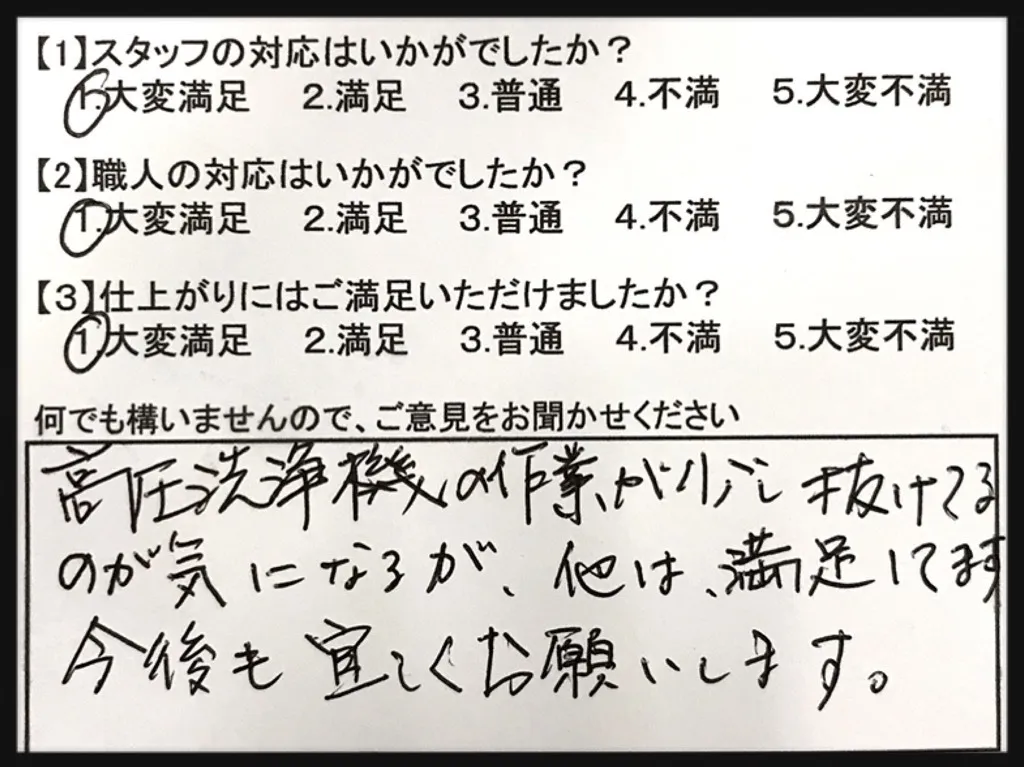 【1】スタッフの対応はいかがでしたか？
1.大変満足 2.満足 3.普通 4.不満 5.大変不満
【2】職人の対応はいかがでしたか？
1.大変満足 2.満足 3.普通 4.不満 5.大変不満
【3】仕上がりにはご満足いただけましたか？
1.大変満足 2.満足 3.普通 4.不満 5.大変不満
何でも構いませんので、ご意見をお聞かせください
高圧洗浄機の作業が少し抜けてる
のが気になるが、他は、満足してます
今後も宜しくお願いします。